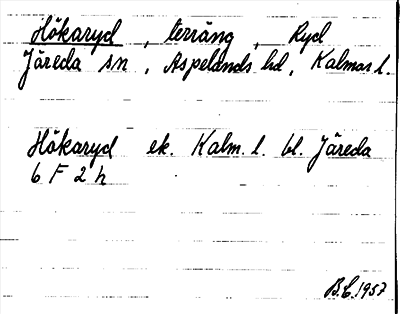 Hökaryd, terräng, Ryd
Järeda sn, Aspelands hd, Kalmar l.
Hökaryd ek. Kalm. l. bl. Järeda
6 F 2 h
B.E. 1957